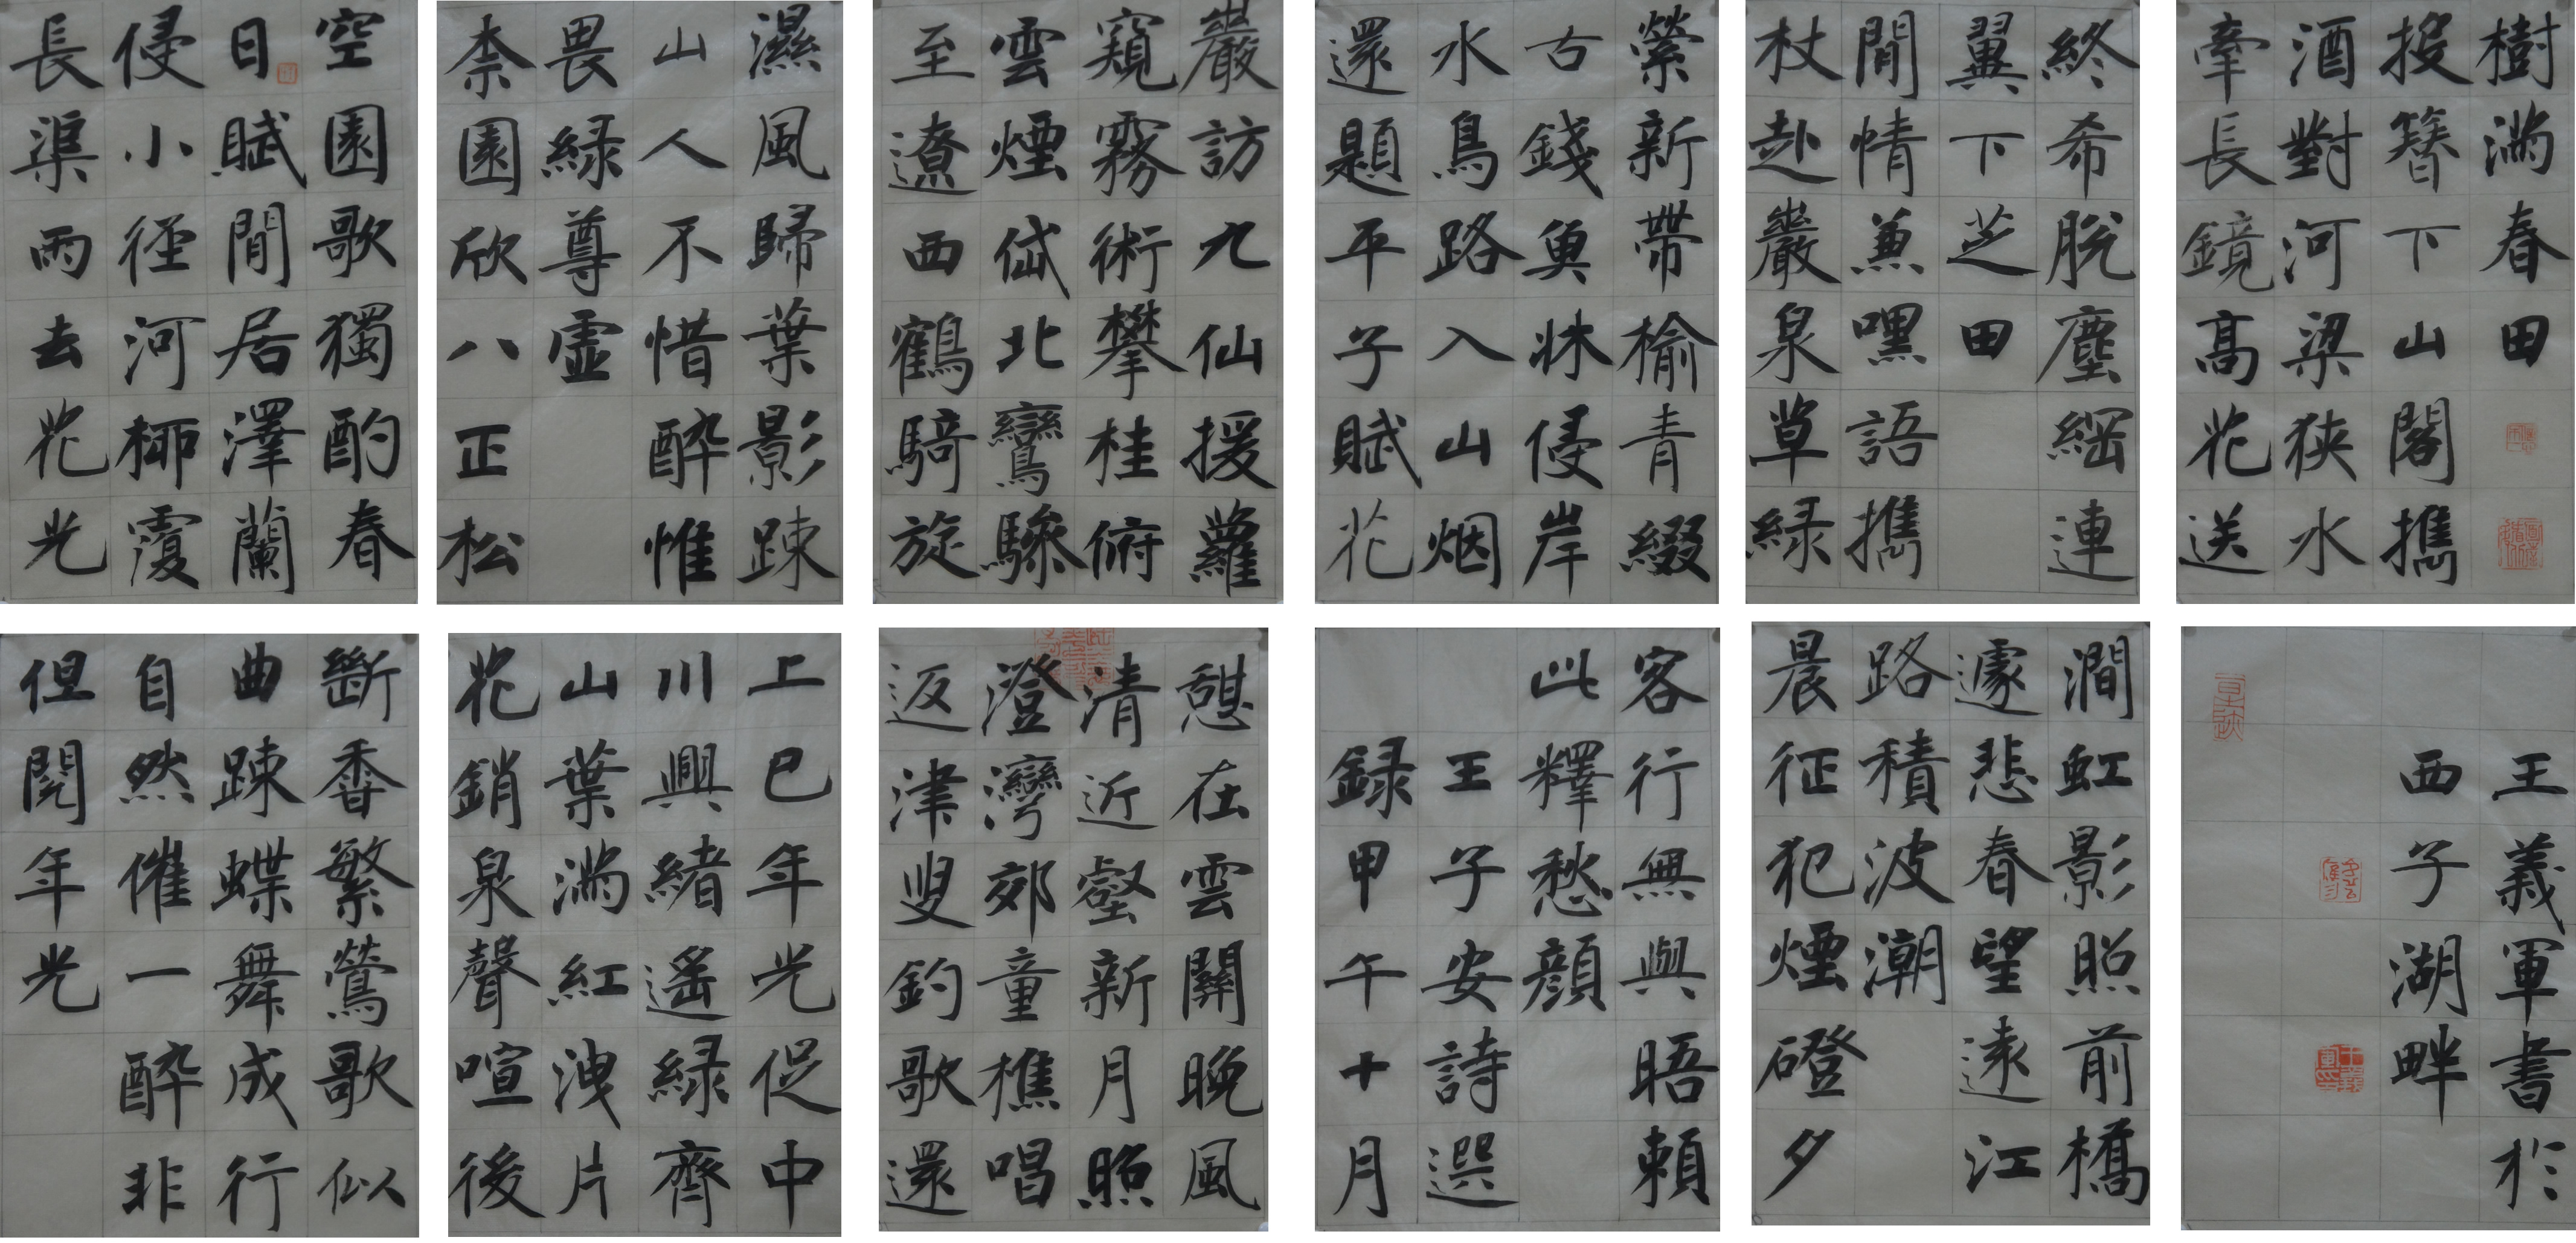 空園歌獨酌春
日賦閒居澤蘭
侵小徑河桺覆
長渠雨去花光
濕風歸葉影踈
山人不惜醉惟
畏綠尊虛
柰園欣八正松
巖訪九仙援蘿
窺霧術攀桂俯
雲煙岱北鸞驂
至遼西鶴騎旋
縈新帶榆青綴
古錢魚牀侵岸
水鳥路入山烟
還題平子賦花
終希脫塵網連
翼下芝田
閒情兼嘿語攜
杖赴巖泉草綠
樹滿春田
投簪下山閣攜
酒對河梁狹水
牽長鏡高花送
斷香繁鶯歌似
曲踈蝶舞成行
自然催一醉非
但閱年光
上巳年光促中
川興緒遙綠齊
山葉滿紅洩片
花銷泉聲喧後
憩在雲關晚風
清近壑新月照
澄灣郊童樵唱
返津叟釣歌還
客行無與晤賴
此釋愁顏
王子安詩選
錄甲午十月
澗虹影照前橋
遽悲春望遠江
路積波潮
晨征犯煙磴夕
王義軍書於
西子湖畔